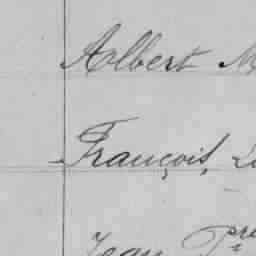 Albert M
François, L
Jean P^re